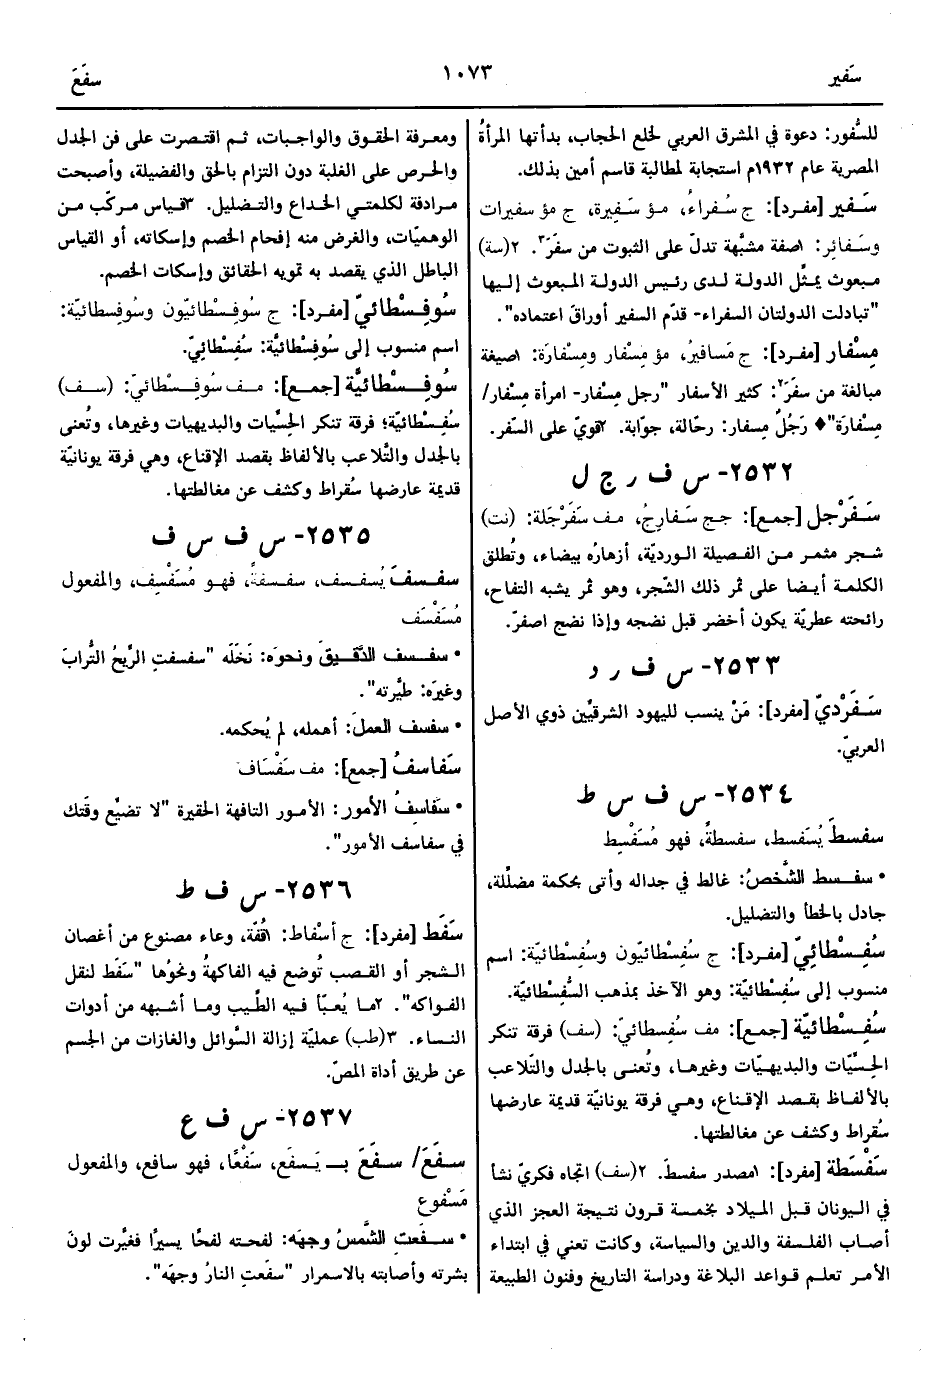 سَفير
١٠٧٣
سفَعَ
للسُّفور: دعوة في المشرق العربي لخلع الحجاب، بدأتها المرأةُ
المصرية عام ١٩٣٢م استجابة لمطالبة قاسم أمين بذلك.
سَفير [مفرد]: ج سُفراءُ، مؤ سَفِيرة، ج مؤ سفيرات
وسَفائرُ: ١صفة مشبَّهة تدلّ على الثبوت من سفَرَ٣. ٢(سة)
مبعوث يمثِّل الدولة لدى رئيس الدولة المبعوث إليها
"تبادلت الدولتان السفراء- قدّم السفير أوراقَ اعتماده".
مِسْفار [مفرد]: ج مَسافيرُ، مؤ مِسْفار ومِسْفارَة: ١صيغة
مبالغة من سفَرَ٢: كثير الأسفار "رجل مِسْفار- امرأة مِسْفار/
مِسْفارَة"♦ رَجُلٌ مِسفار: رحّالة، جوّابة. ٢قويّ على السّفر.
٢٥٣٢- س ف ر ج ل
سَفَرْجل [جمع]: جج سَفارِجُ، مف سَفَرْجَلة: (نت)
شجر مثمر من الفصيلة الورديّة، أزهارُه بيضاء، وتُطلق
الكلمة أيضا على ثمر ذلك الشّجر، وهو ثمر يشبه التفاح،
رائحته عطريّة يكون أخضر قبل نضجه وإذا نضج اصفرّ.
٢٥٣٣- س ف ر د
سَفَرْديّ [مفرد]: مَنْ ينسب لليهود الشرقيِّين ذوي الأصل
العربيّ.
٢٥٣٤- س ف س ط
سفسطَ يُسَفسط، سفسطةً، فهو مُسَفْسِط
• سفسط الشَّخصُ: غالط في جداله وأتى بحكمة مضلِّلة،
جادل بالخطأ والتضليل.
سُفِسْطائيّ [مفرد]: ج سُفِسْطائيّون وسُفِسْطائيّة: اسم
منسوب إلى سُفِسْطائيّة: وهو الآخذ بمذهب السُّفِسْطائيّة.
سُفِسْطائيّة [جمع]: مف سُفِسطائيّ: (سف) فرقة تنكر
الحِسِّيّات والبديهيّات وغيرها، وتُعنى بالجدل والتّلاعب
بالألفاظ بقصد الإقناع، وهي فرقة يونانيّة قديمة عارضها
سُقراط وكشف عن مغالطتها.
سَفْسَطة [مفرد]: ١مصدر سفسطَ. ٢(سف) اتجاه فكريّ نشأ
في اليونان قبل الميلاد بخمسة قرون نتيجة العجز الذي
أصاب الفلسفة والدين والسياسة، وكانت تعني في ابتداء
الأمر تعلم قواعد البلاغة ودراسة التاريخ وفنون الطبيعة
ومعرفة الحقوق والواجبات، ثم اقتصرت على فن الجدل
والحرص على الغلبة دون التزام بالحق والفضيلة، وأصبحت
مرادفة لكلمتي الخداع والتضليل. ٣قياس مركّب من
الوهميّات، والغرض منه إفحام الخصم وإسكاته، أو القياس
الباطل الذي يقصد به تمويه الحقائق وإسكات الخصم.
سُوفِسْطائيّ [مفرد]: ج سُوفِسْطائيّون وسُوفِسطائيّة:
اسم منسوب إلى سُوفِسْطائيَّة: سُفِسْطائيّ.
سُوفِسْطائيَّة [جمع]: مف سُوفِسْطائيّ: (سف)
سُفِسْطائيّة؛ فرقة تنكر الحِسِّيات والبديهيات وغيرها، وتُعنى
بالجدل والتُّلاعب بالألفاظ بقصد الإقناع، وهي فرقة يونانيّة
قديمة عارضها سُقراط وكشف عن مغالطتها.
٢٥٣٥- س ف س ف
سفسفَ يُسفسف، سفسفةً، فهو مُسَفْسِف، والمفعول
مُسَفْسَف
• سفسف الدَّقيقَ ونحوَه: نَخَلَه "سفسفتِ الرِّيحُ التُّرابَ
وغيرَه: طيَّرته".
• سفسف العملَ: أهمله، لم يُحكمه.
سَفاسفُ [جمع]: مف سَفْسَاف
• سَفاسِفُ الأمور: الأمور التافهة الحقيرة "لا تضيِّع وقتَك
في سفاسف الأمور".
٢٥٣٦- س ف ط
سَفَط [مفرد]: ج أسْفاط: ١قُفّة، وعاء مصنوع من أغصان
الشجر أو القصب تُوضع فيه الفاكهةُ ونحوُها "سَفَط لنقل
الفواكه". ٢ما يُعبّأ فيه الطِّيب وما أشبهه من أدوات
النساء. ٣(طب) عمليّة إزالة السَّوائل والغازات من الجسم
عن طريق أداة المصّ.
٢٥٣٧- س ف ع
سفَعَ/ سفَعَ بـ يَسفَع، سَفْعًا، فهو سافِع، والمفعول
مَسْفوع
• سفَعتِ الشَّمسُ وجهَه: لفحته لفحًا يسيرًا فغيَّرت لونَ
بشرته وأصابته بالاسمرار "سفَعتِ النارُ وجهَه".